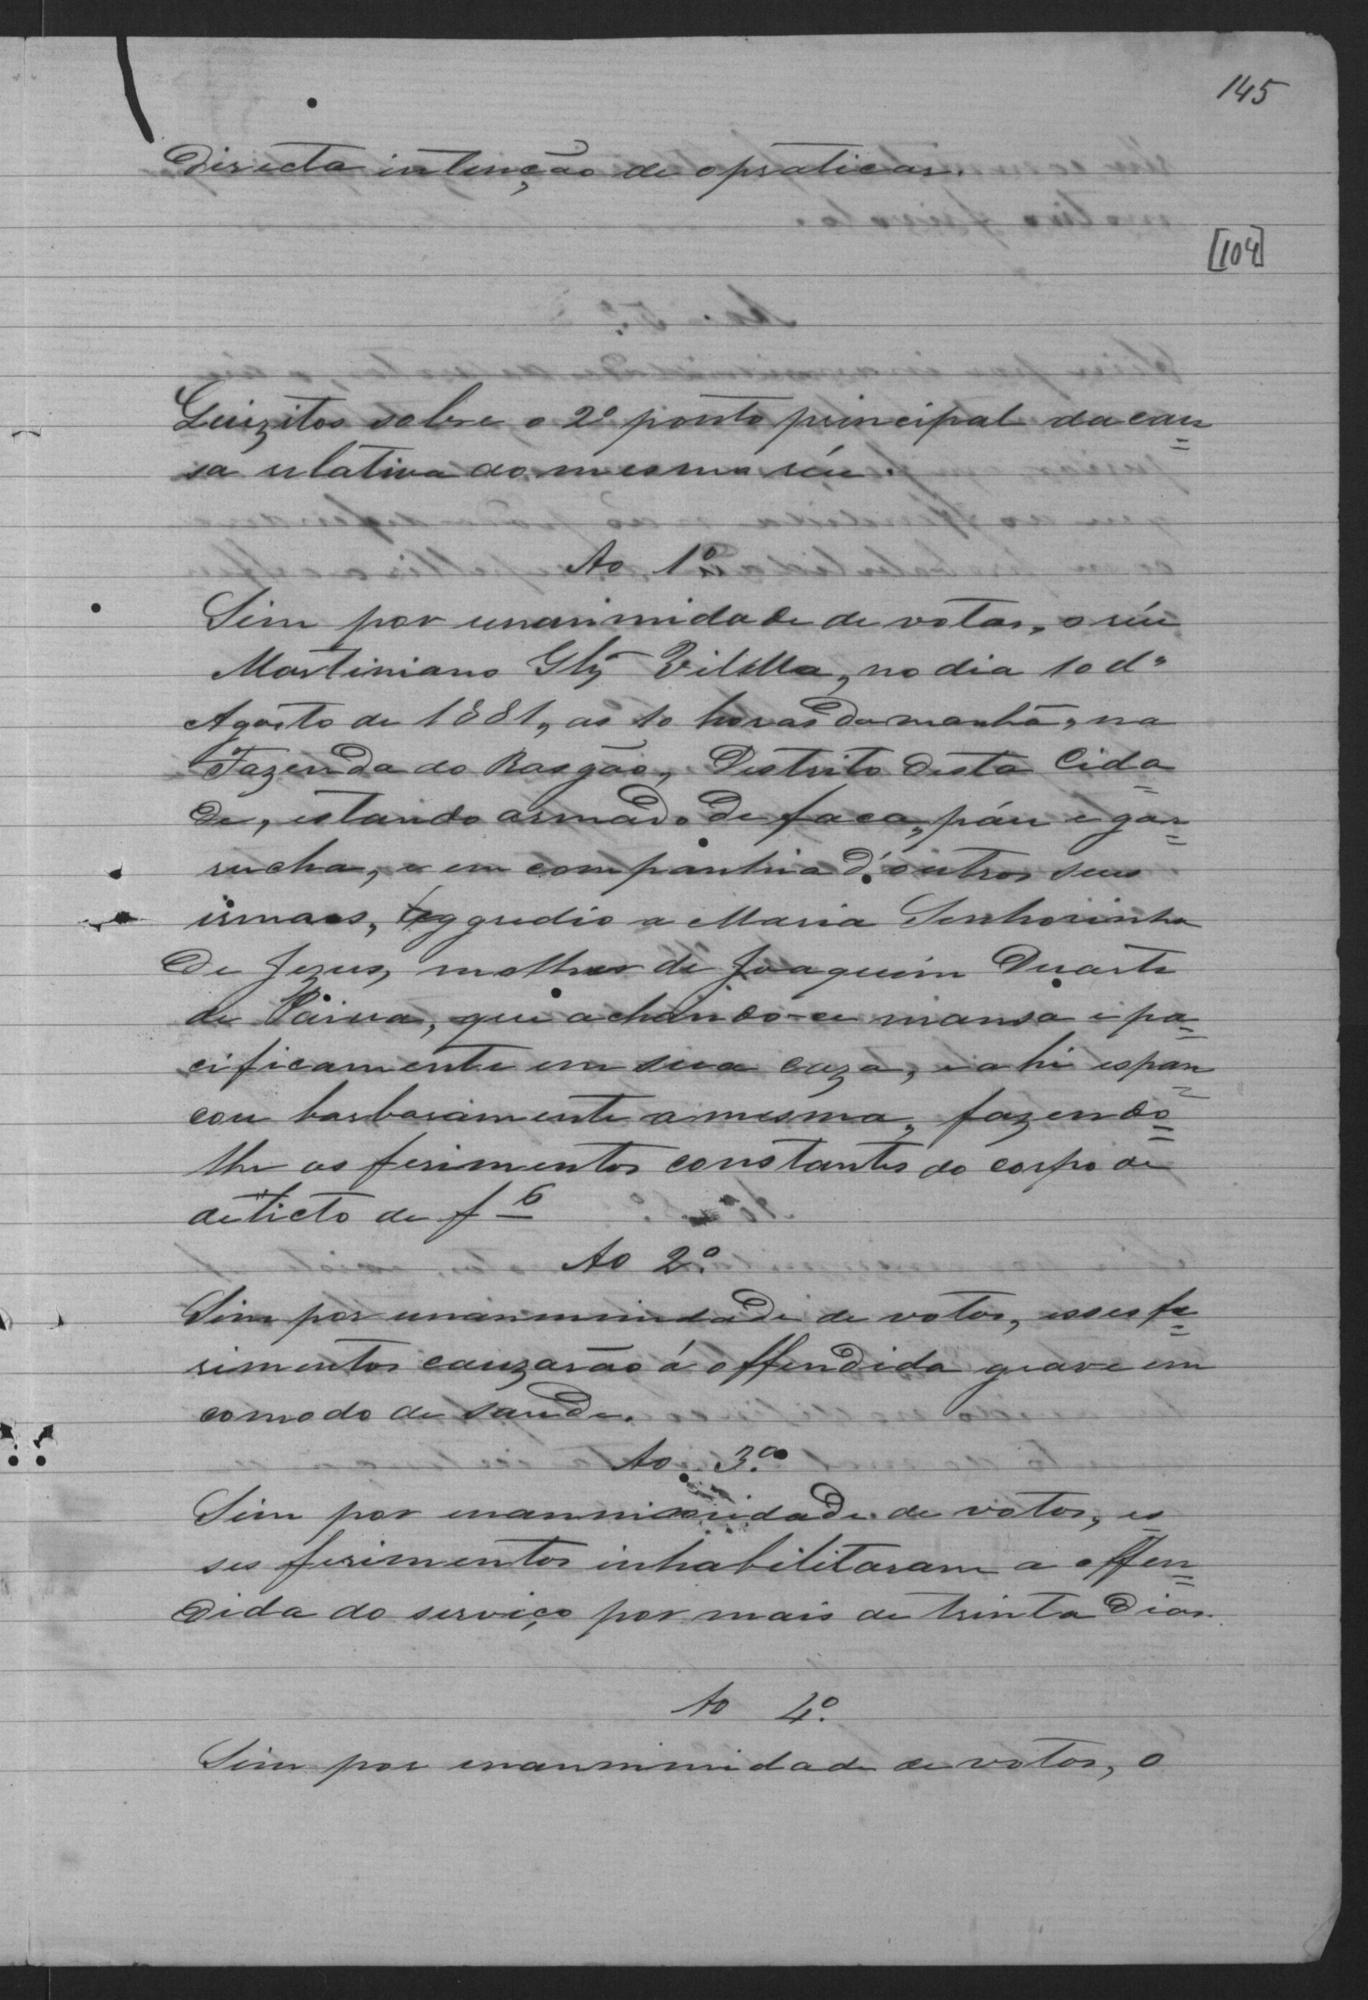 145
directa intenção de o praticar.
[104]
Quizitos sobre o 2º ponto principal da cau=
sa relativa ao mesmo réu.
Ao 1º
Sim por unanimidade de votos, o réu
Martiniano Glz Vilella, no dia 10 dº
Agosto de 1881, as 10 horas da manhã, na
Fazenda do Rasgão, Destrito desta Cida=
de, estando armado de faca, páu e gar=
rucha, e em companhia d'outros seus
irmaos, aggredio a Maria Senhorinha
de Jezus, molher de Joaquim Duarte
de Paiva, que achando-ce mansa e pa=
cificamente em sua caza, e ahi espan=
cou barbaramente a mesma, fazendo=
lhe os ferimentos constantes do corpo de
delicto de f 6
Ao 2º.
Sim por unanimidade de votos, esses fe=
rimentos cauzarão á offendida grave in
comodo de saude.
Ao 3º
Sim por unanimidade de votos, es
ses ferimentos inhabilitaram a offen=
dida do serviço por mais de trinta dias.
Ao 4º.
Sim por unanimidade de votos, o